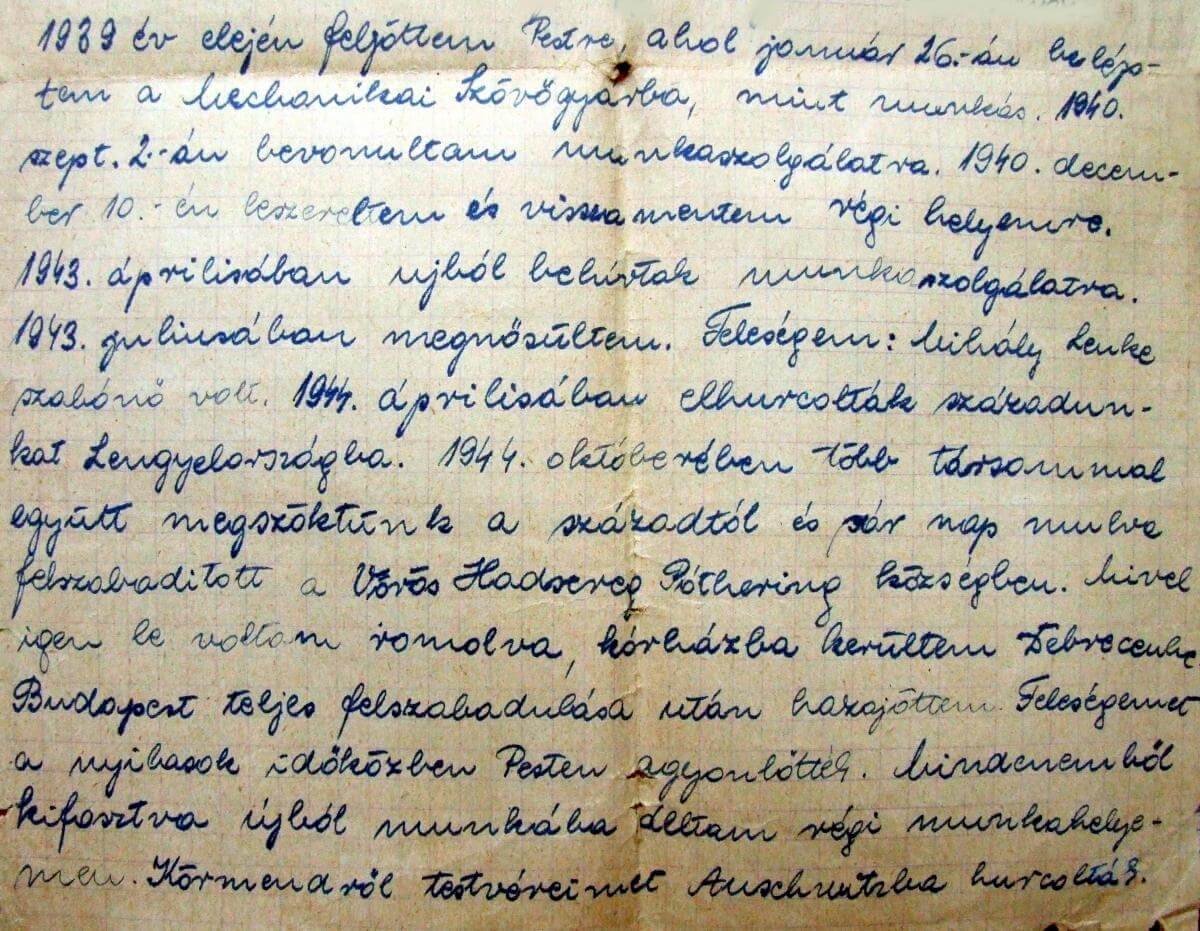 1939 év elején feljöttem Pestre, ahol január 26.-án belép-
tem a Mechanikai Szövőgyárba, mint munkás. 1940.
szept. 2.-án bevonultam munkaszolgálatra. 1940. decem-
ber 10.-én leszereltem és visszamentem régi helyemre.
1943. áprilisában ujból behívtak munkaszolgálatra.
1943. juliusában megnősültem. Feleségem: Mihály Lenke
szabónő volt. 1944. áprilisában elhurcolták századun-
kat Lengyelországba. 1944. októberében több társammal
együtt megszöktünk a századtól és pár nap mulva
felszabadított a Vörös Hadsereg Póthering községben. Mivel
igen le voltam romolva, kórházba kerültem Debrecenbe
Budapest teljes felszabadulása után hazajöttem. Feleségemet
a nyilasok időközben Pesten agyonlőtték. Mindenemből
kifosztva újból munkába álltam régi munkahelye-
men. Körmendről testvéreimet Auschwitzba hurcolták.